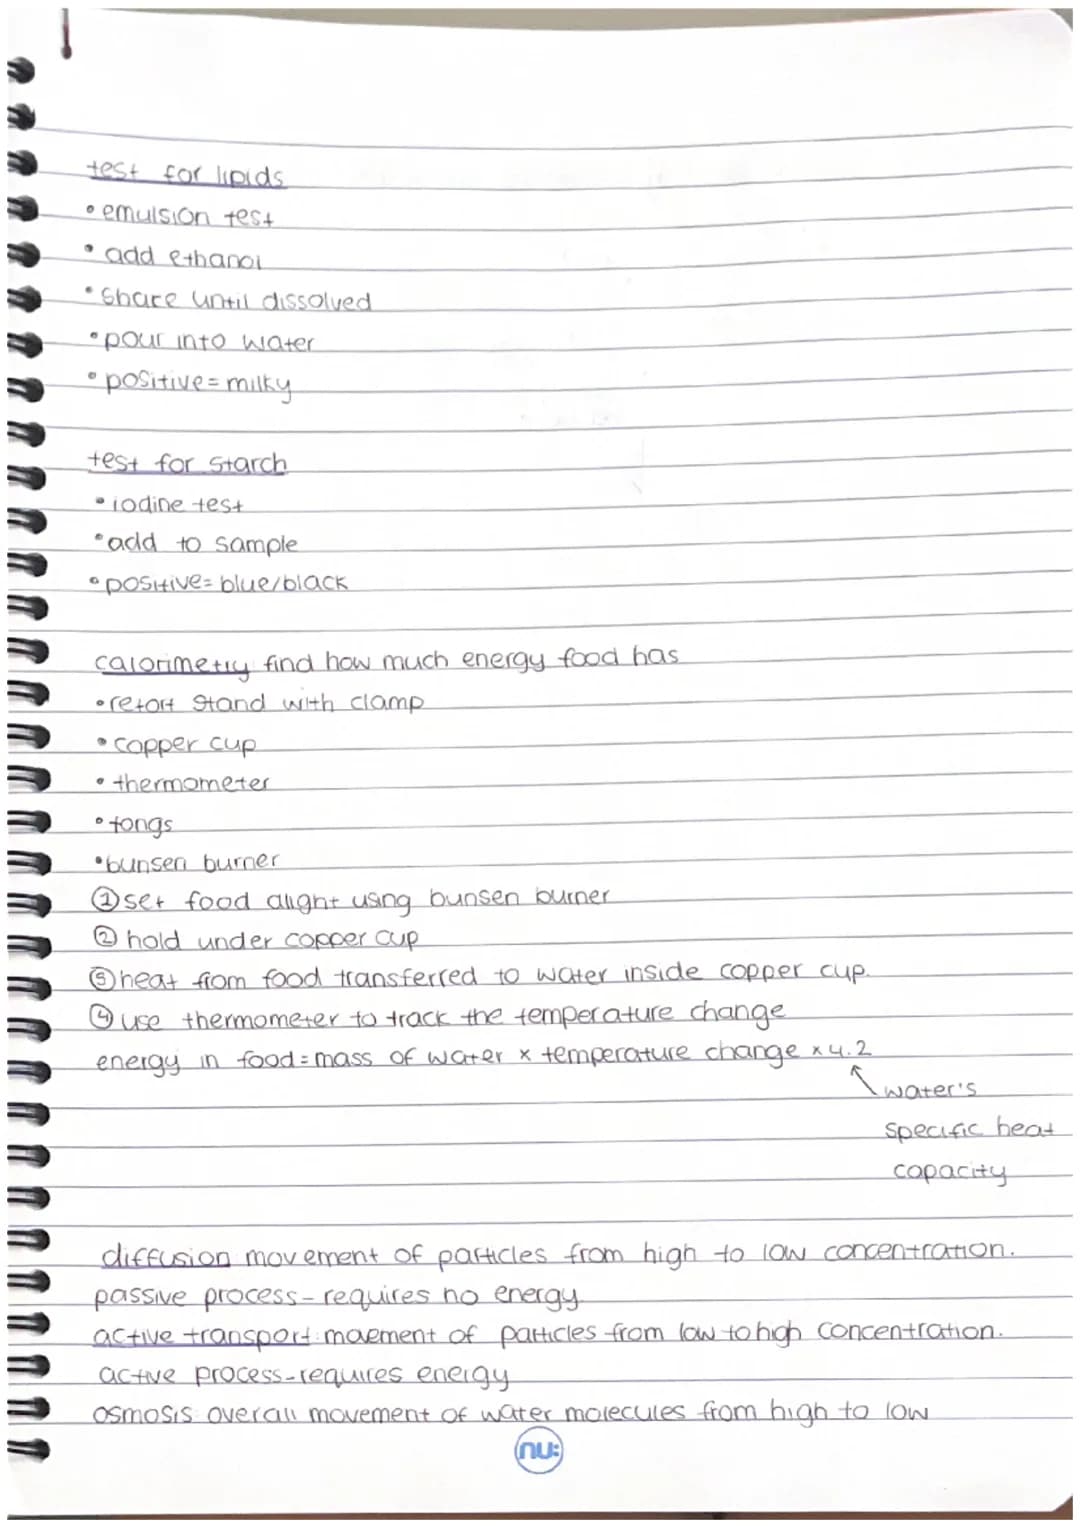 test for lipids
• emulsion test
• add ethanol
• Share until dissolved
• pour into water
• positive = milky
test for starch
• iodine test
• add to sample
• positive = blue/black
calorimetry: find how much energy food has
• retort stand with clamp
• copper cup
• thermometer
• tongs
• bunsen burner
① set food alight using bunsen burner
② hold under copper cup
③ heat from food transferred to water inside copper cup.
④ use thermometer to track the temperature change
energy in food = mass of water x temperature change x 4.2
water's
specific heat
capacity
diffusion movement of particles from high to low concentration.
passive process - requires no energy
active transport: movement of particles from low to high concentration.
active process - requires energy
osmosis overall movement of water molecules from high to low
nu: